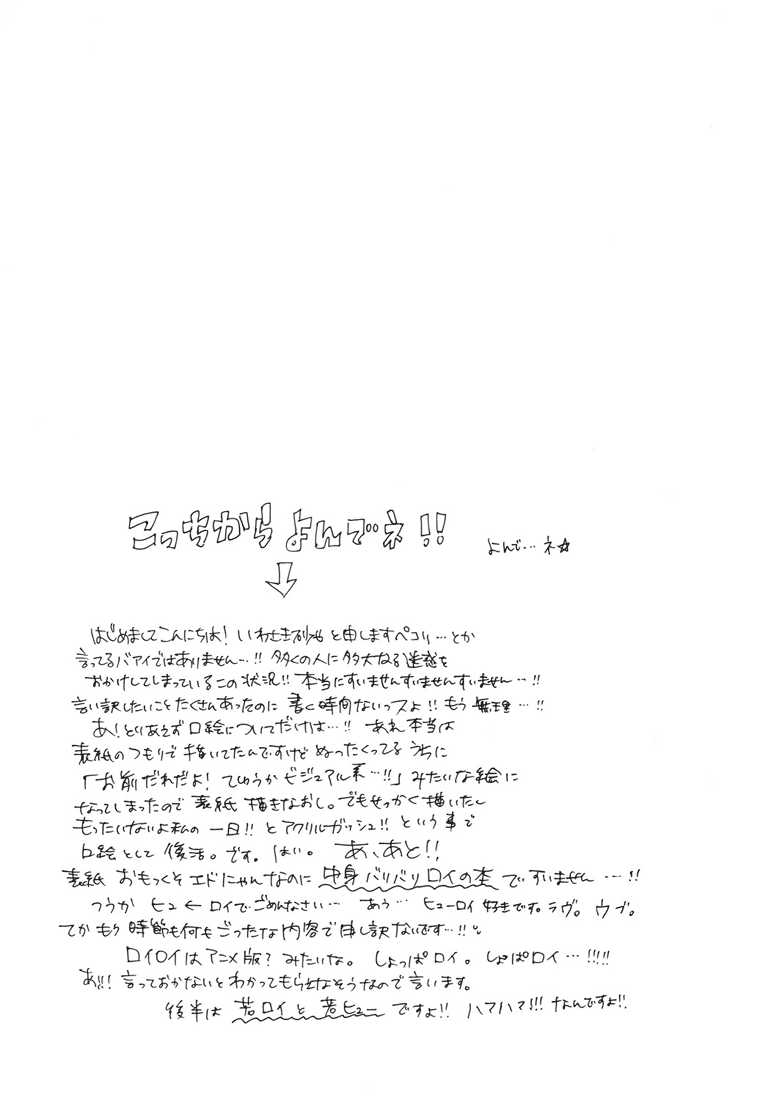 こっちから よんでネ!!
よんで…ネ☆
↓
はじめましてこんにちは! いわさき と申しますペコリ…とか
言ってるバアイではありません…!! 多くの人に多大なる迷惑を
おかけしてしまっているこの状況!! 本当にすいませんすいませんすいません…!!
言い訳したいことたくさんあったのに 書く時間ないっスよ!! もう無理…!!
あ!とりあえず口絵についてだけは…!! あれ本当は
表紙のつもりで描いてたんですけど ぬったくってるうちに
「お前だれだよ! てゆうかビジュアル系…!!」みたいな絵に
なってしまったので 表紙 描きなおし。でもせっかく描いたし
もったいないよ私の一日!! とアクリルガッシュ!! という事で
口絵として 復活。です。はい。 あ、あと!!
表紙 おもっくそエドにゃんなのに 中身バリバリロイの本ですいません…!!
つうか ヒュ←ロイでごめんなさい… あう… ヒューロイ好きです。ラヴ。ウブ。
てかもう 時節も何もごったな内容で申し訳ないです…!!
ロイロイはアニメ版? みたいな。 しょっぱロイ。しょぱロイ…!!!!
あ!! 言っておかないとわかってもらえなそうなので言います。
後半は 若ロイと若ヒュー ですよ!! ハァハァ!!! なんですよ!!